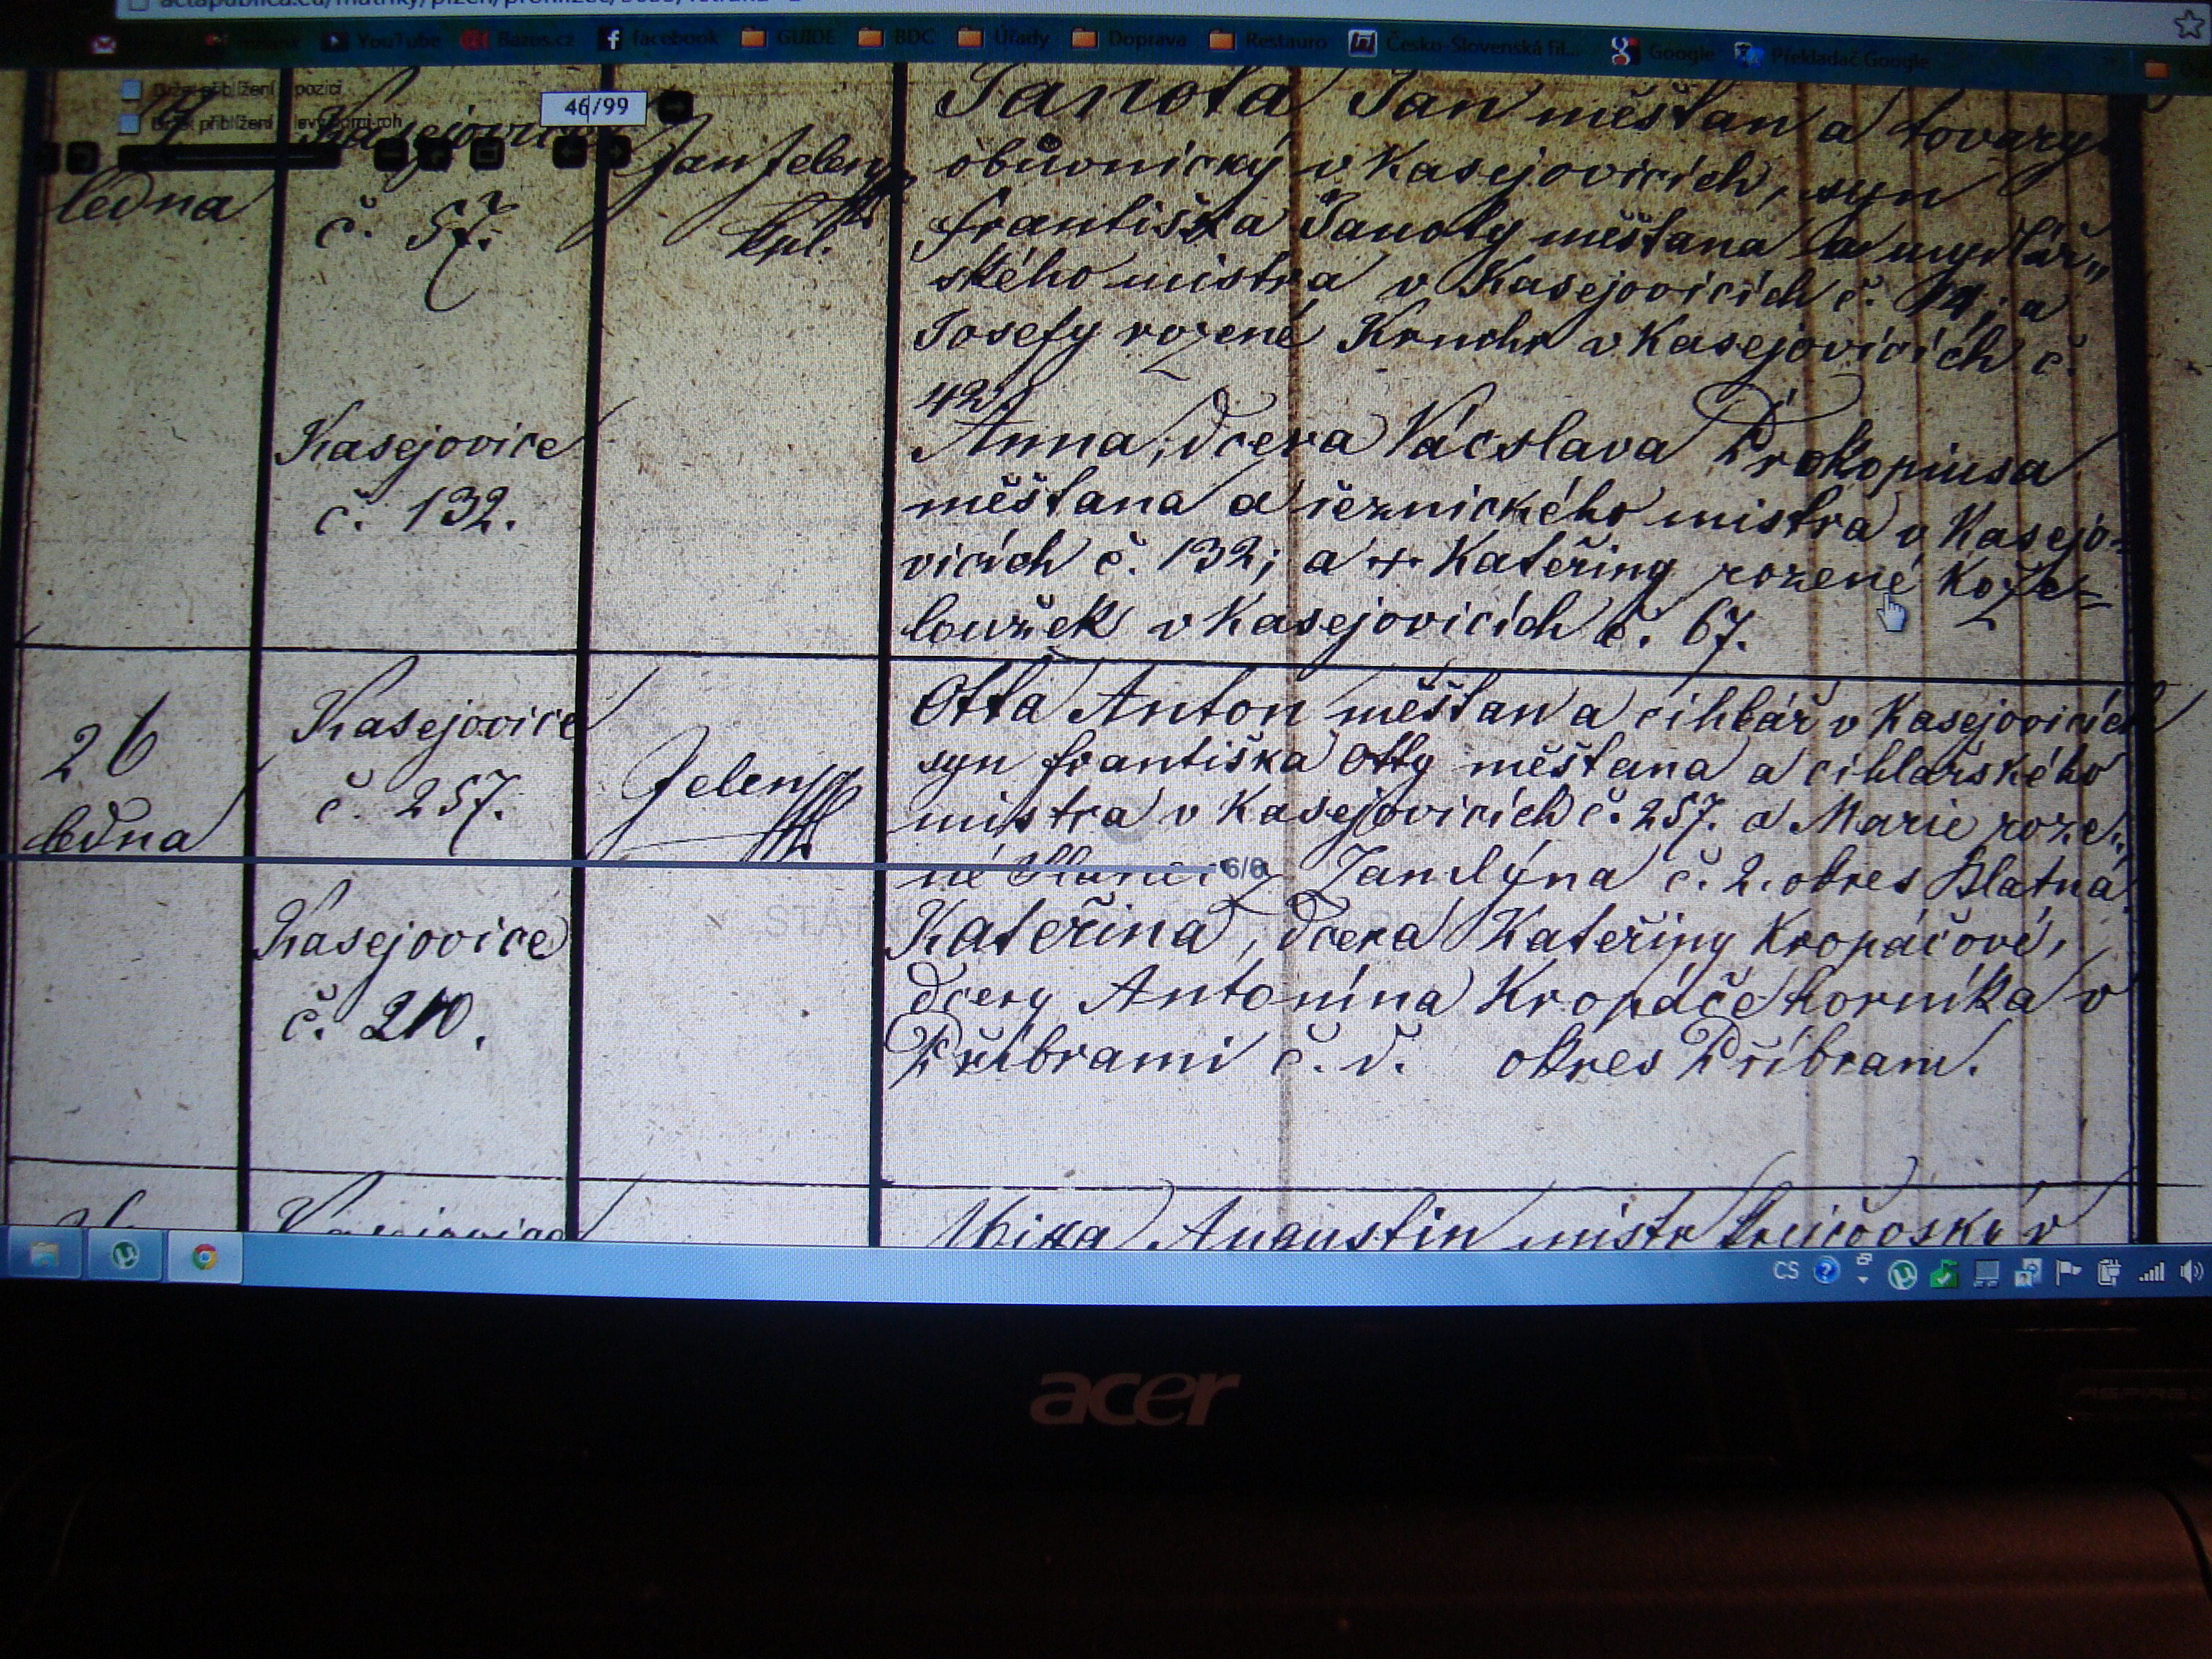 YouTube Bazos.cz facebook GUIDE BDC Úřady Doprava Restauro Česko-Slovenská fil... Google Překladač Google
46/99
ledna
Kasejovice
č. 57.
Jan Jelen
kpl.
Janota Jan měšťan a tovary
obuvnický v Kasejovicích, syn
Františka Janoty měšťana a mydlář„
ského mistra v Kasejovicích č. a
Josefy rozené v Kasejovicích č.
42
Kasejovice
č. 132.
Anna, dcera Vácslava Prokopiusa
měštana a řeznického mistra v Kasejo-
vicích č. 132; a + Kateřiny rozené Kože-
loužek v Kasejovicích č. 67.
26
ledna
Kasejovice
č. 257.
Jelen
Otta Anton měšťan a cihlář v Kasejovicích
syn Františka Otty měšťana a cihlářského
mistra v Kasejovicích č. 257. a Marie roze„
né z Zamlýna č. 2. okres Blatná
6/6
Kasejovice
č. 210.
Kateřina, dcera Kateřiny Kropáčové,
dcery Antonína Kropáče horníka v
Příbrami č. d. okres Příbram.
Augustin mistr v
CS
acer